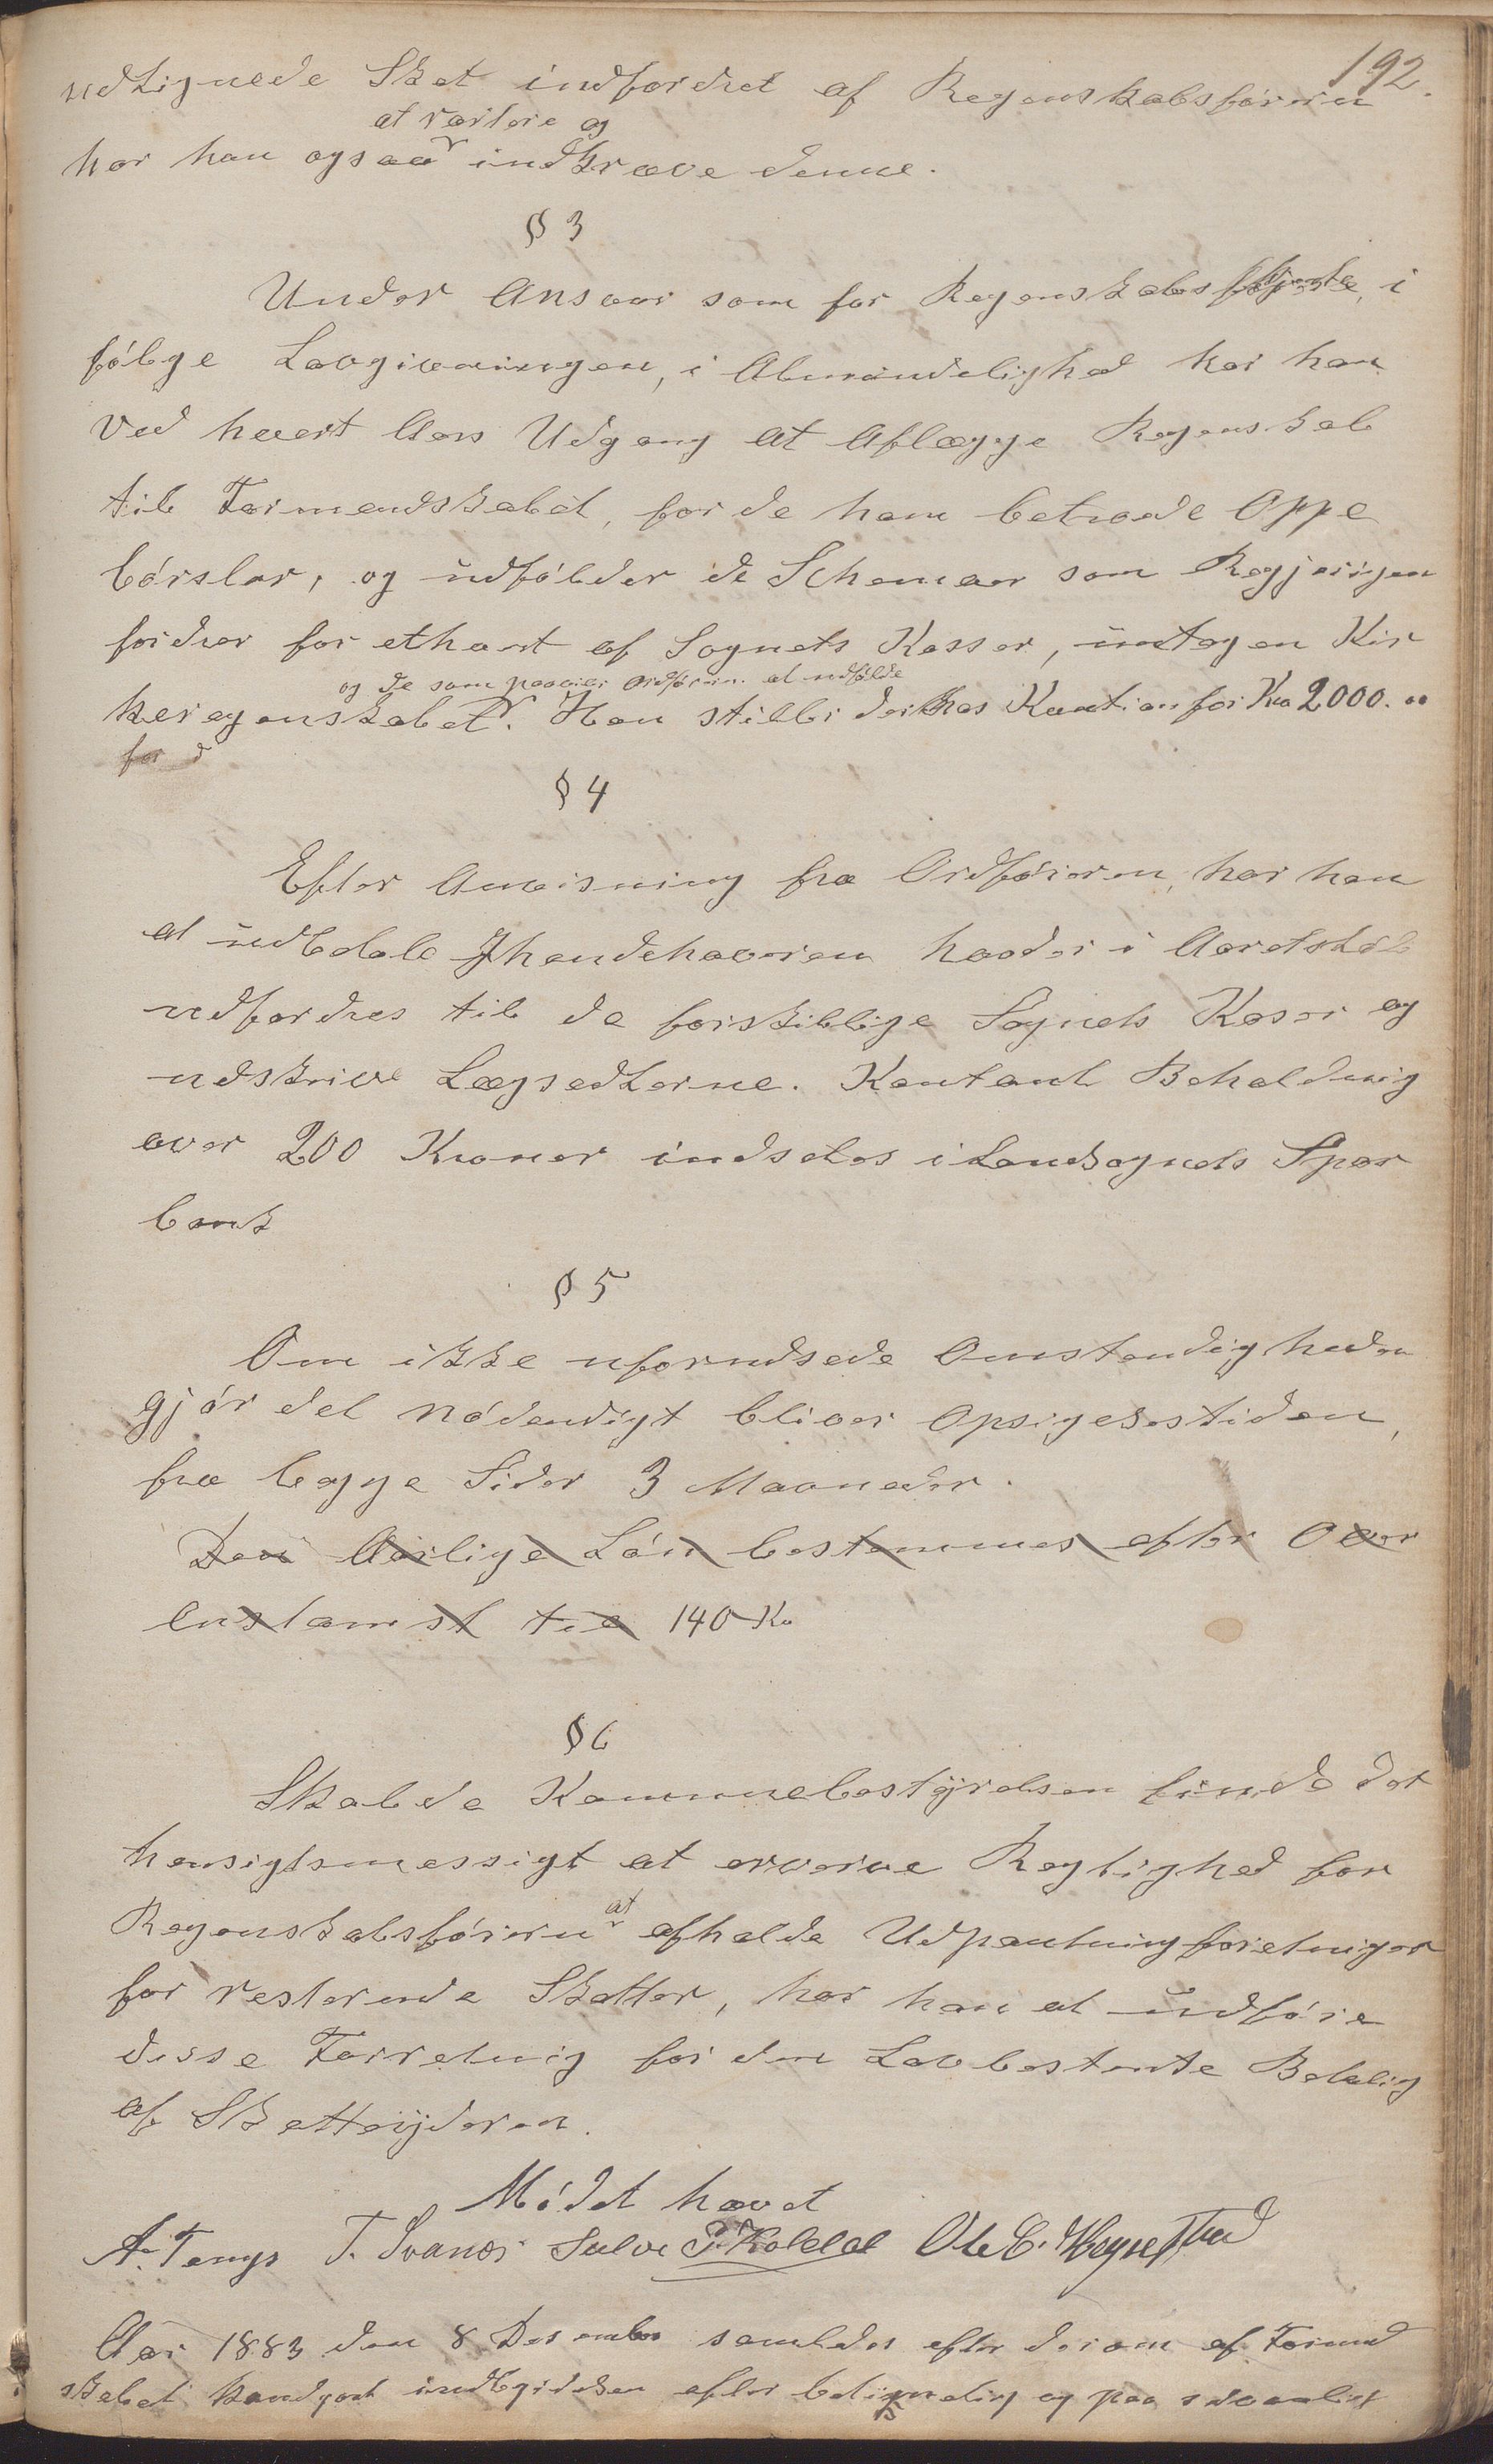 192.
udlignede Skat indfordret af Regenskabsføreren
at vartere og
har han ogsaa indkræve denne.
§ 3
Under Ansvar som for Regenskabs i
følge Lovgivningen, i Almindelighed har han
ved hvert Aars Udgang at Aflægge Regenskab
til Formendskabet, for de ham betroede Oppe
børsler, og udfølder de Schemaer som Regjerigen
fordrer for ethvert af Sognets Kasser, untagen Kir
og de som paaviler Ordføreren at udfølde
keregenskabet. Han stiller derhos Kaution for Kr 2000.00
for d
§ 4
Efter Anvisning fra Ordføreren, har han
at udbetale Ihendehaveren hvad der i Aarets Løb
udfordres til de forskillige Sognets Kaser og
udskrive Lægsedlerne. Kontant Beholdnig
over 200 Kroner indsetes i Landsognets Spar
bank
§ 5
Om ikke uforudsede Omstendigheder
gjør det Nødendigt bliver Opsigelsestiden,
fra begge Sider 3 Maaneder.
Den Aarlige Løn bestemmes efter Over
enskomst til 140 Kr
§ 6
Skulde Kommuebestyrelsen finde det
hensigtsmessigt at erverve Rettighed for
at
Regenskabsføreren afholde Udpantning foretninger
for resterende Skatter, har han at udføre
disse Forretnig for den Lovbestemte Betalig
af Skatteyderen.
Mødet hævet
A. Tengs T. Svanes Salve P. Kolldal Ole C. Høgnestad
Aar 1883 den 8 Desember samledes efter derom af Formend
skabet kundgort indbydelsen efter betimelig og paa sedvanligt